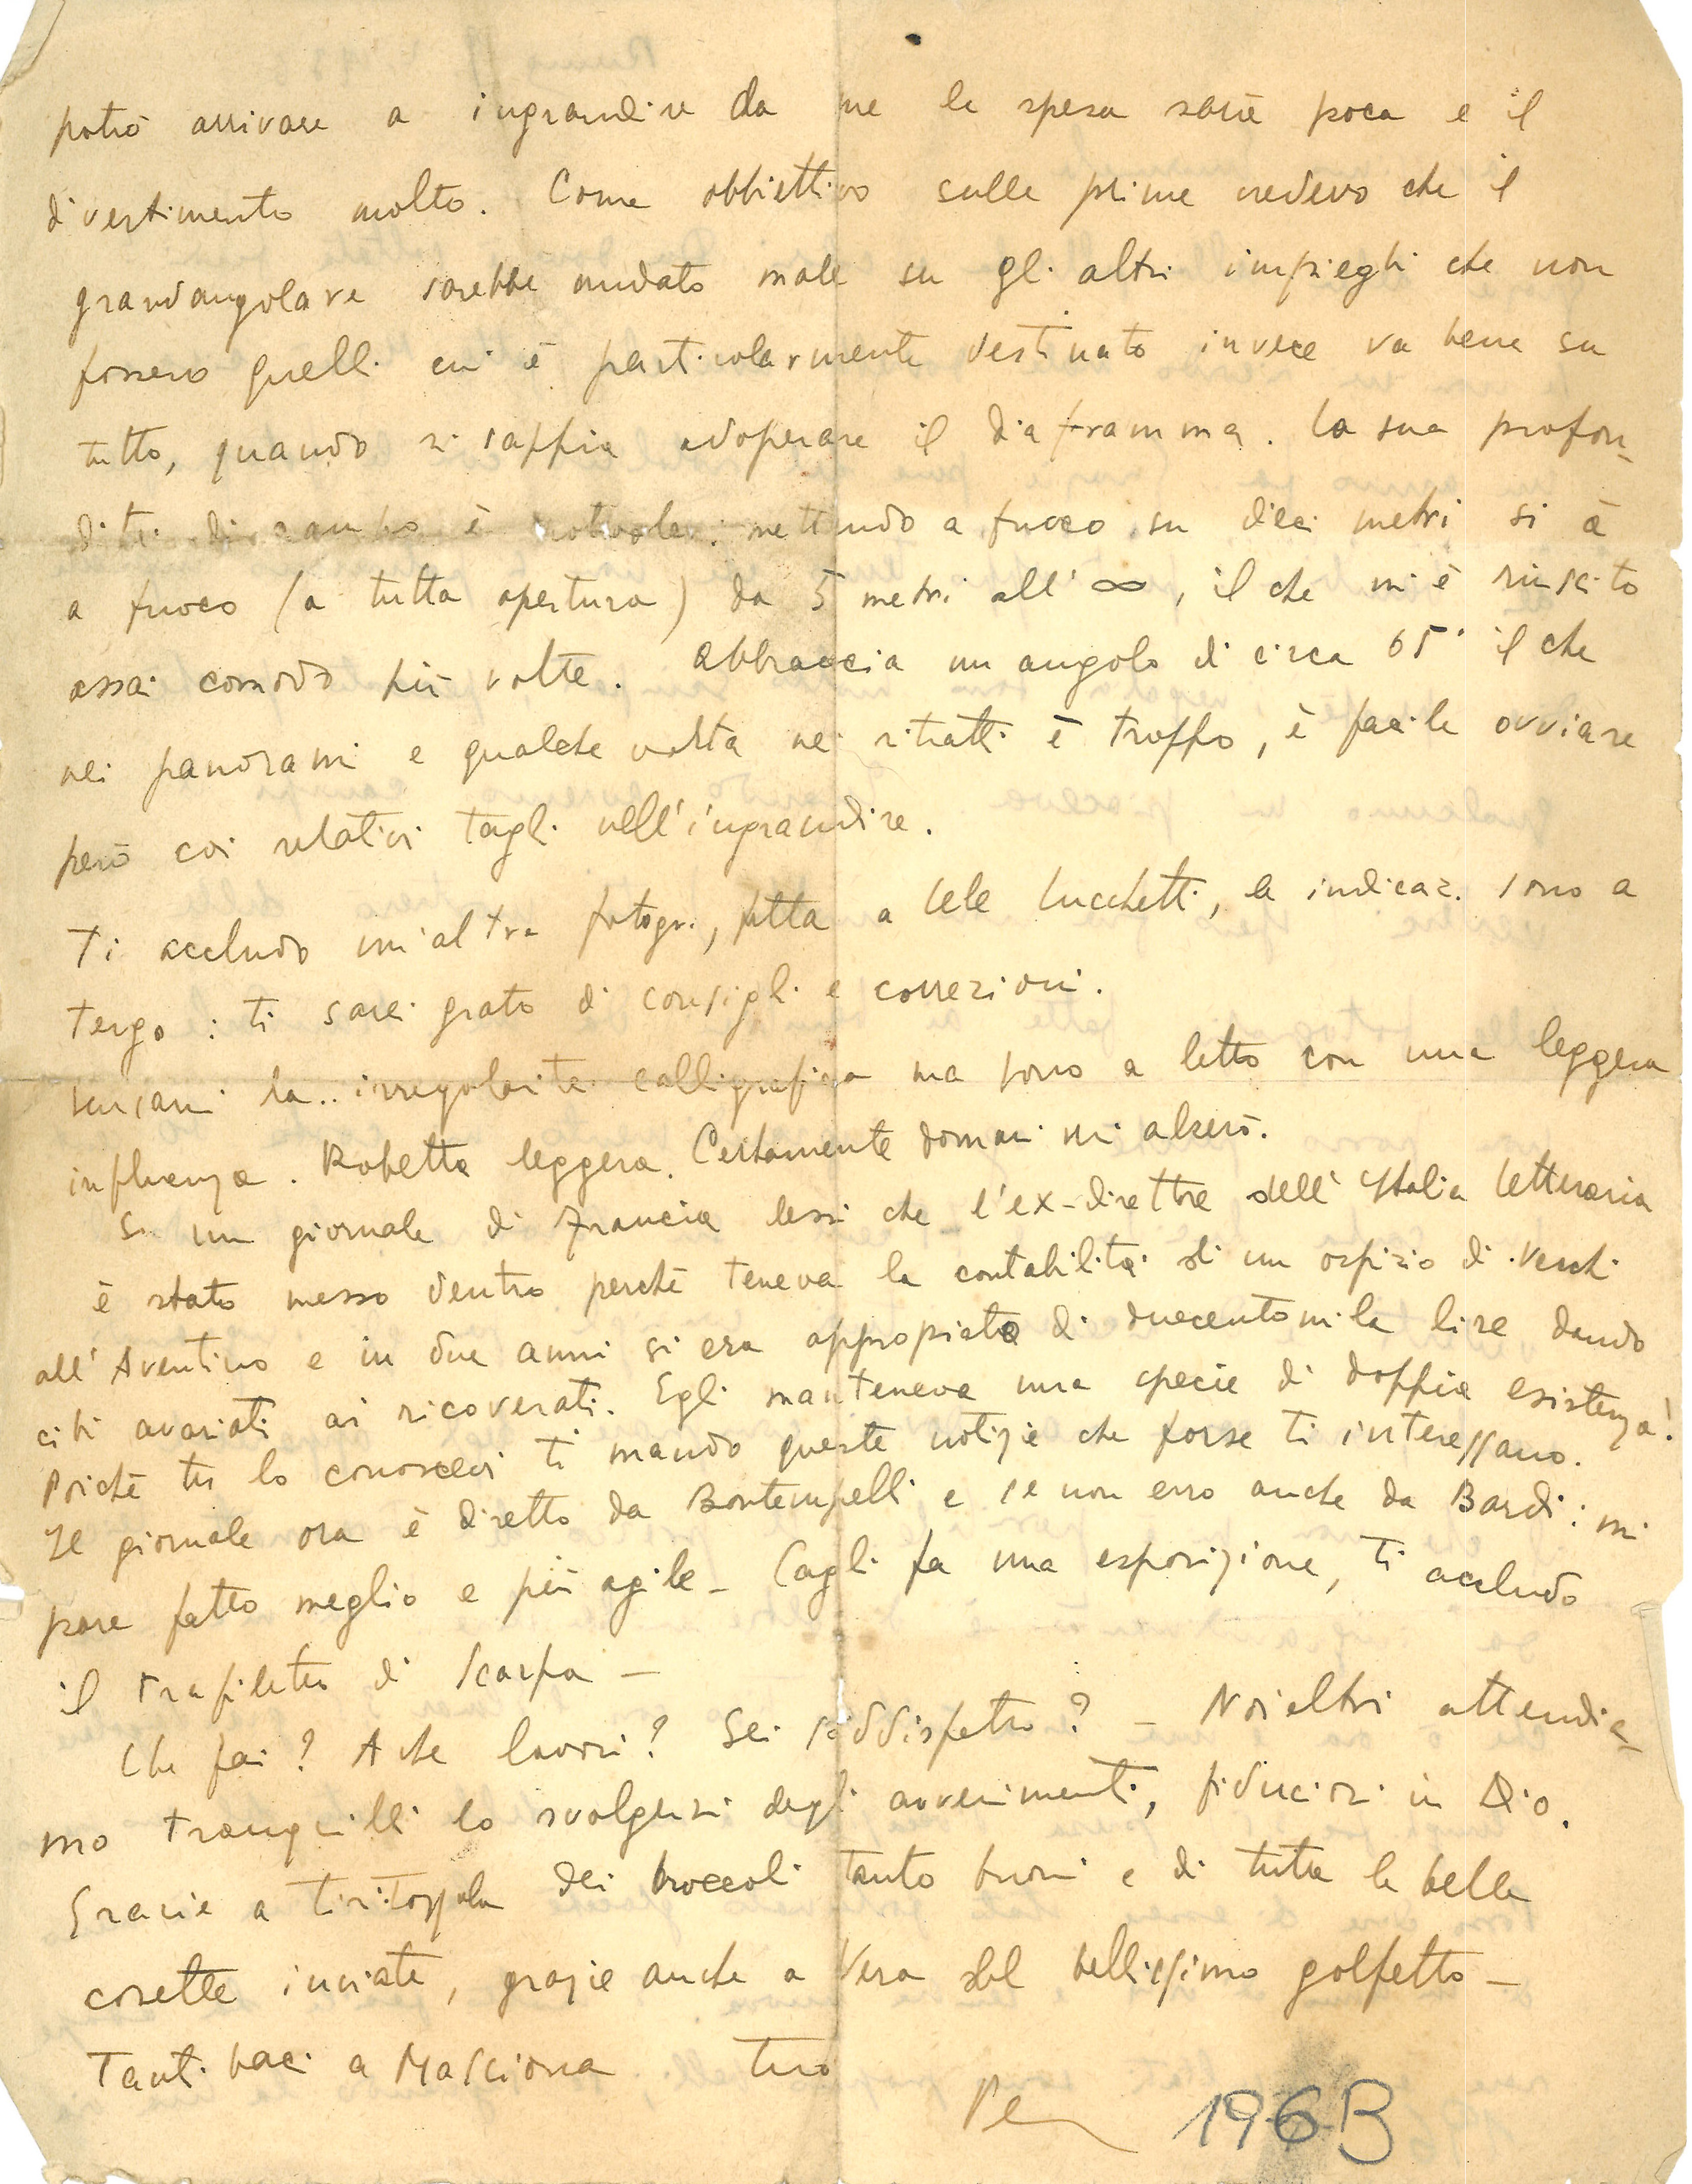 potrò arrivare a ingrandire da me la spesa sarà poca e il
divertimento molto. Come obbiettivo sulle prime credevo che il
grandangolare sarebbe andato male su gli altri impieghi che non
fossero quelli cui è particolarmente destinato invece va bene su
tutto, quando si sappia adoperare il diaframma. La sua profon-
dità di campo è notevole: mettendo a fuoco su dieci metri si è
a fuoco (a tutta apertura) da 5 metri all'∞, il che mi è riuscito
assai comodo più volte. Abbraccia un angolo di circa 65° il che
nei panorami e qualche volta nei ritratti è troppo, è facile ovviare
però coi relativi tagli nell'ingrandire.
Ti accludo un'altra fotogr., fatta a Lele Lucchetti, le indicaz. sono a
tergo: ti sarei grato di consigli e correzioni.
scusami la.. irregolarità calligrafica ma sono a letto con una leggera
influenza. Robetta leggera. Certamente domani mi alzerò.
Su un giornale di Francia lessi che l'ex-direttore dell'Italia Letteraria
è stato messo dentro perchè teneva la contabilità di un ospizio di vecchi
all'Aventino e in due anni si era appropiato di duecentomila lire dando
cibi avariati ai ricoverati. Egli manteneva una specie di doppia esistenza!
Poichè tu lo conoscevi ti mando queste notizie che forse ti interessano.
Il giornale ora è diretto da Bontempelli e se non erro anche da Bardi: mi
pare fatto meglio e più agile - Cagli fa una esposizione, ti accludo
il trafiletto di Scarpa -
Che fai? A che lavori? Sei soddisfatto? - Noialtri attendia-
mo tranquilli lo svolgersi degli avvenimenti, fiduciosi in Dio.
Grazie a dei broccoli tanto buoni e di tutte le belle
cosette inviate, grazie anche a Vera del bellissimo golfetto -
Tanti baci a Masciona tuo
196B